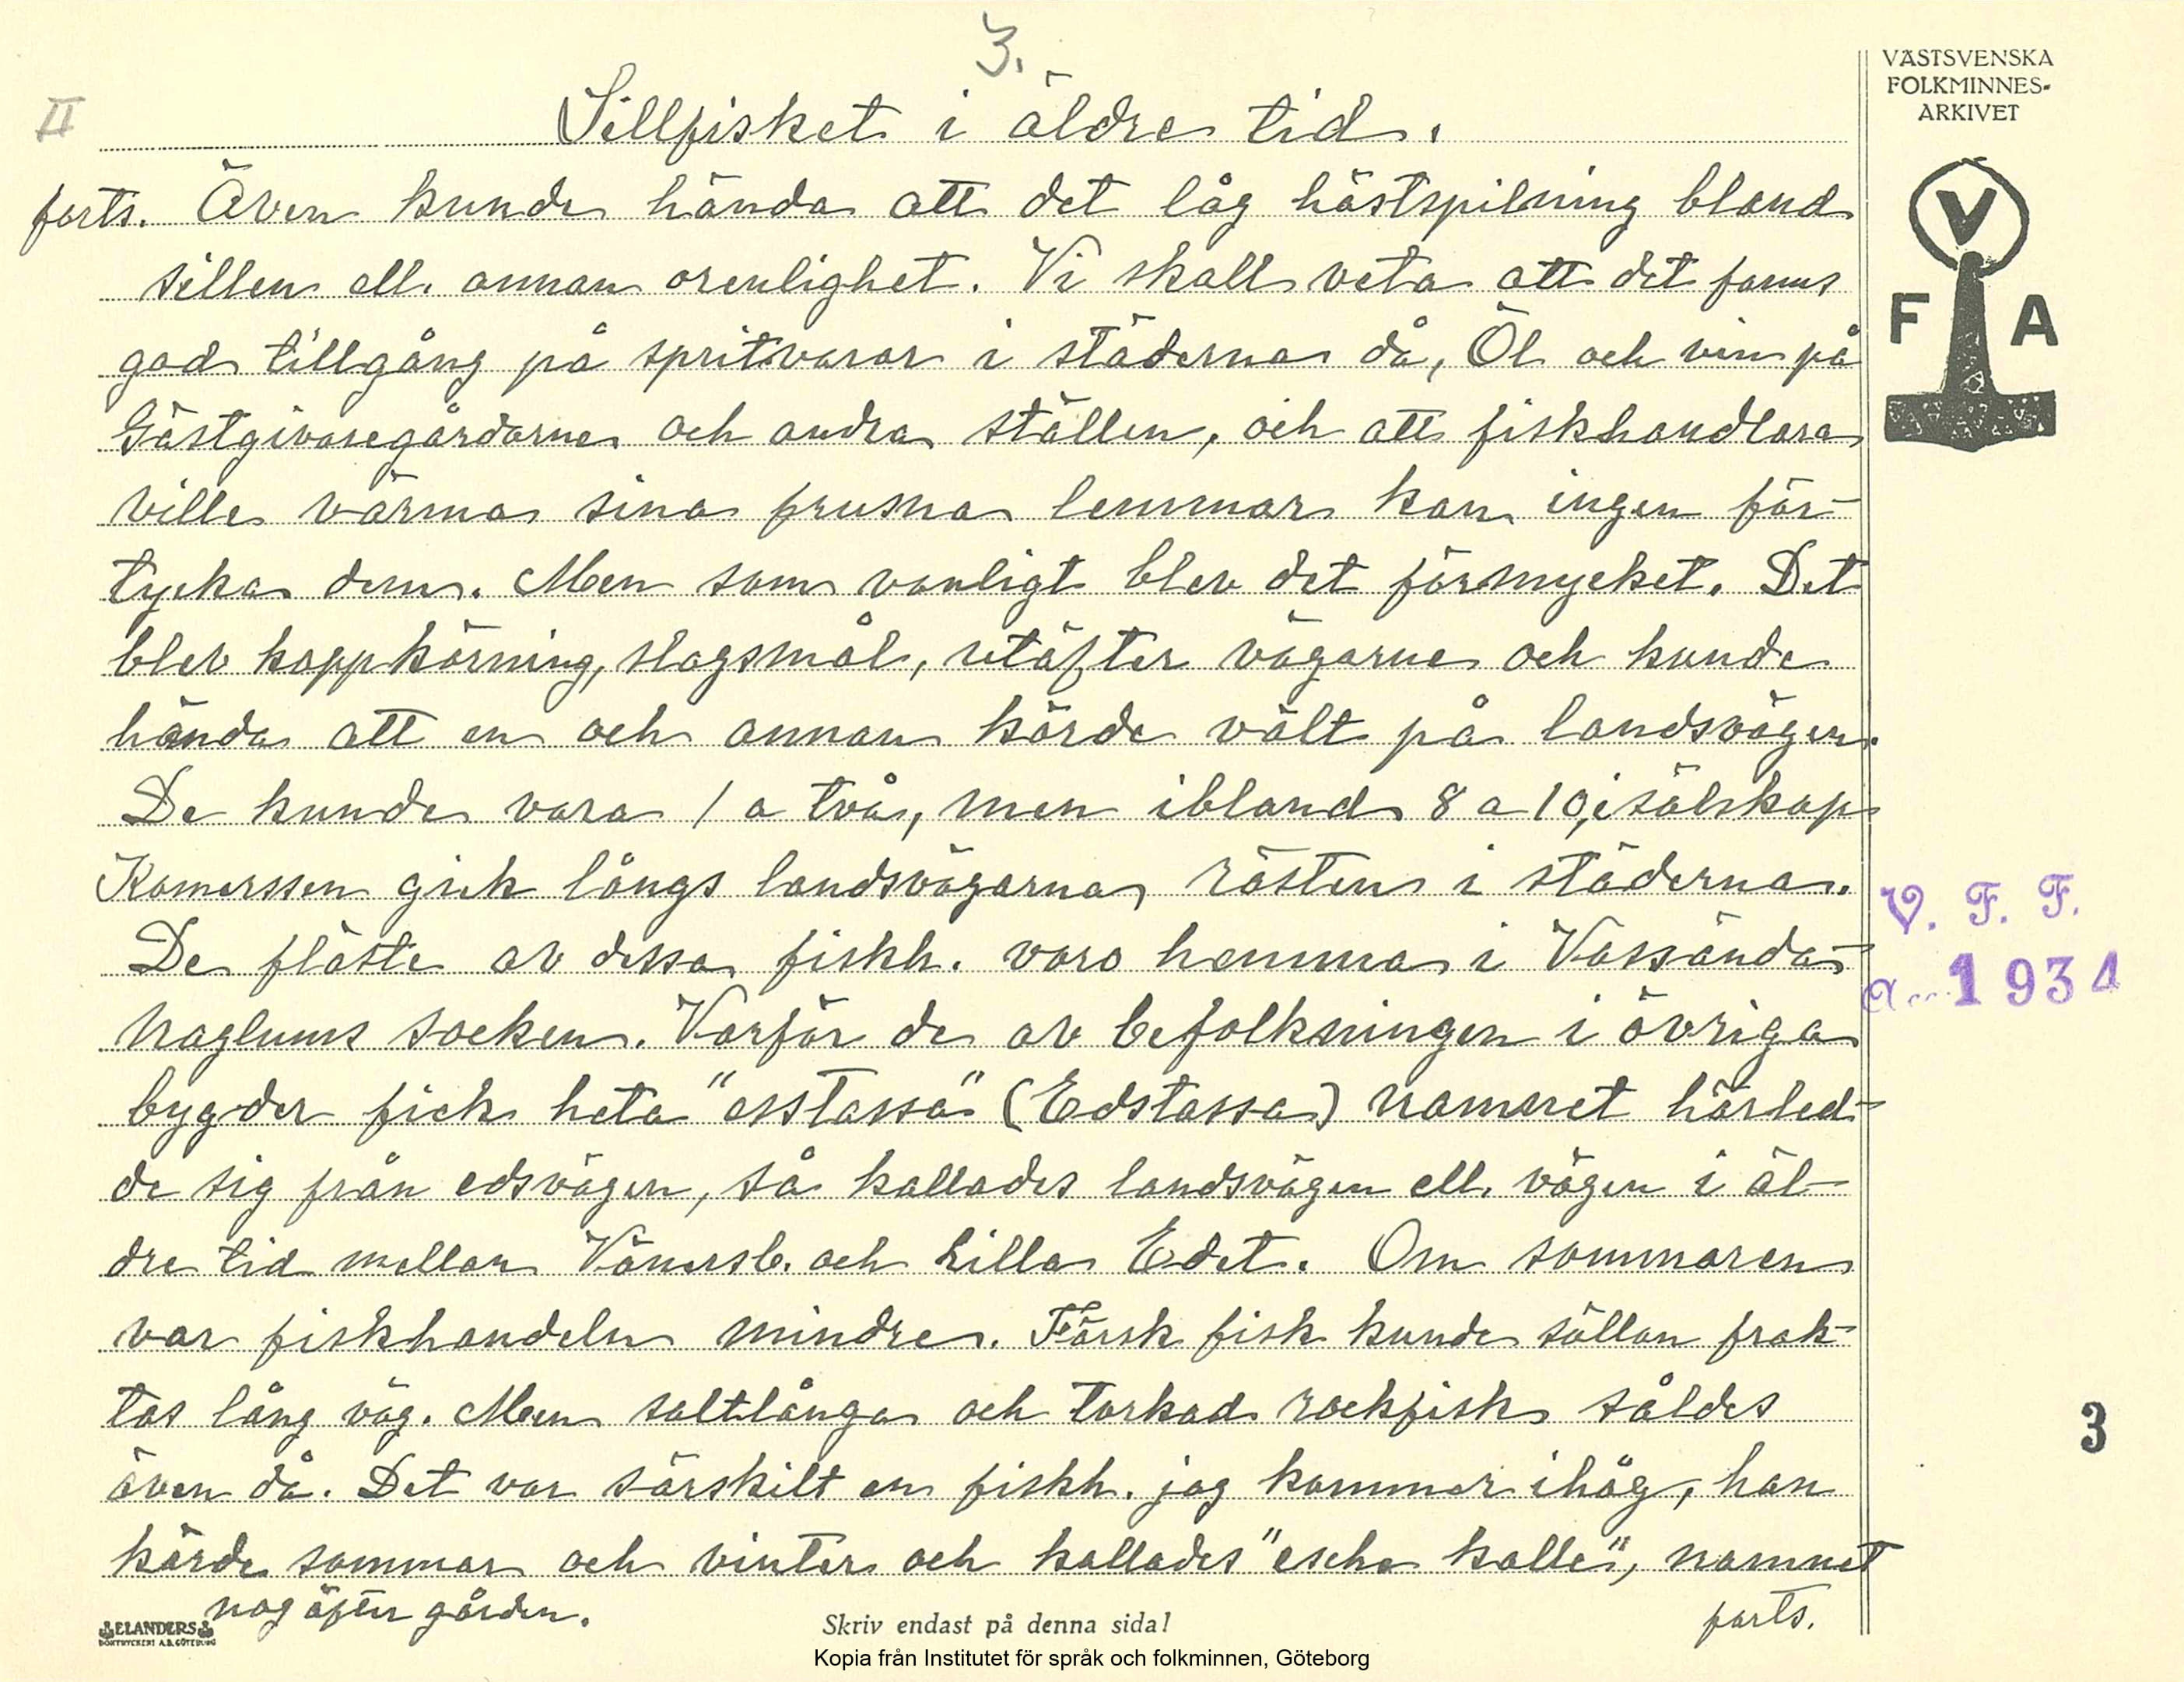 3.
VÄSTSVENSKA
FOLKMINNES-
ARKIVET
II
Sillfisket i äldre tid.
V
F A
forts. Även kunde hända att det låg hästspilning bland
sillen ell. annan orenlighet. Vi skall veta att det fanns
god tillgång på spritvaror i städerna då, Öl och vin på
Gästgivaregårdarne och andra ställen, och att fiskhandlara
ville värma sina frusna lemmar kan ingen för-
tycka dem. Men som vanligt blev det förmycket. Det
blev kappkörning, slagsmål, utäfter vägarne och kunde
hända att en och annan körde vält på landsvägen.
De kunde vara 1 a två, men ibland 8 a 10, i sälskap
Komerssen gick långs landsvägarna, rästen i städerna.
De fläste av dessa fiskh. voro hemma i Vassända-
Naglums socken. Varför de av befolkningen i övriga
bygder fick heta "esstassa" (Edstassa) namnet härled-
de sig från edsvägen, så kallades landsvägen ell. vägen i äl-
dre tid mellan Vänersb. och Lilla Edet. Om sommaren
var fiskhandeln mindre. Färsk fisk kunde sällan frak-
tas lång väg. Men saltlånga och torkad rockfisk såldes
även då. Det var särskilt en fiskh. jag kommer ihåg, han
körde sommar och vinter och kallades "esche kalle", namnet
nog äfter gården.
forts.
V. F. F.
1934
3
ELANDERS
BOKTRYCKERI A.B. GÖTEBORG
Skriv endast på denna sida!
Kopia från Institutet för språk och folkminnen, Göteborg